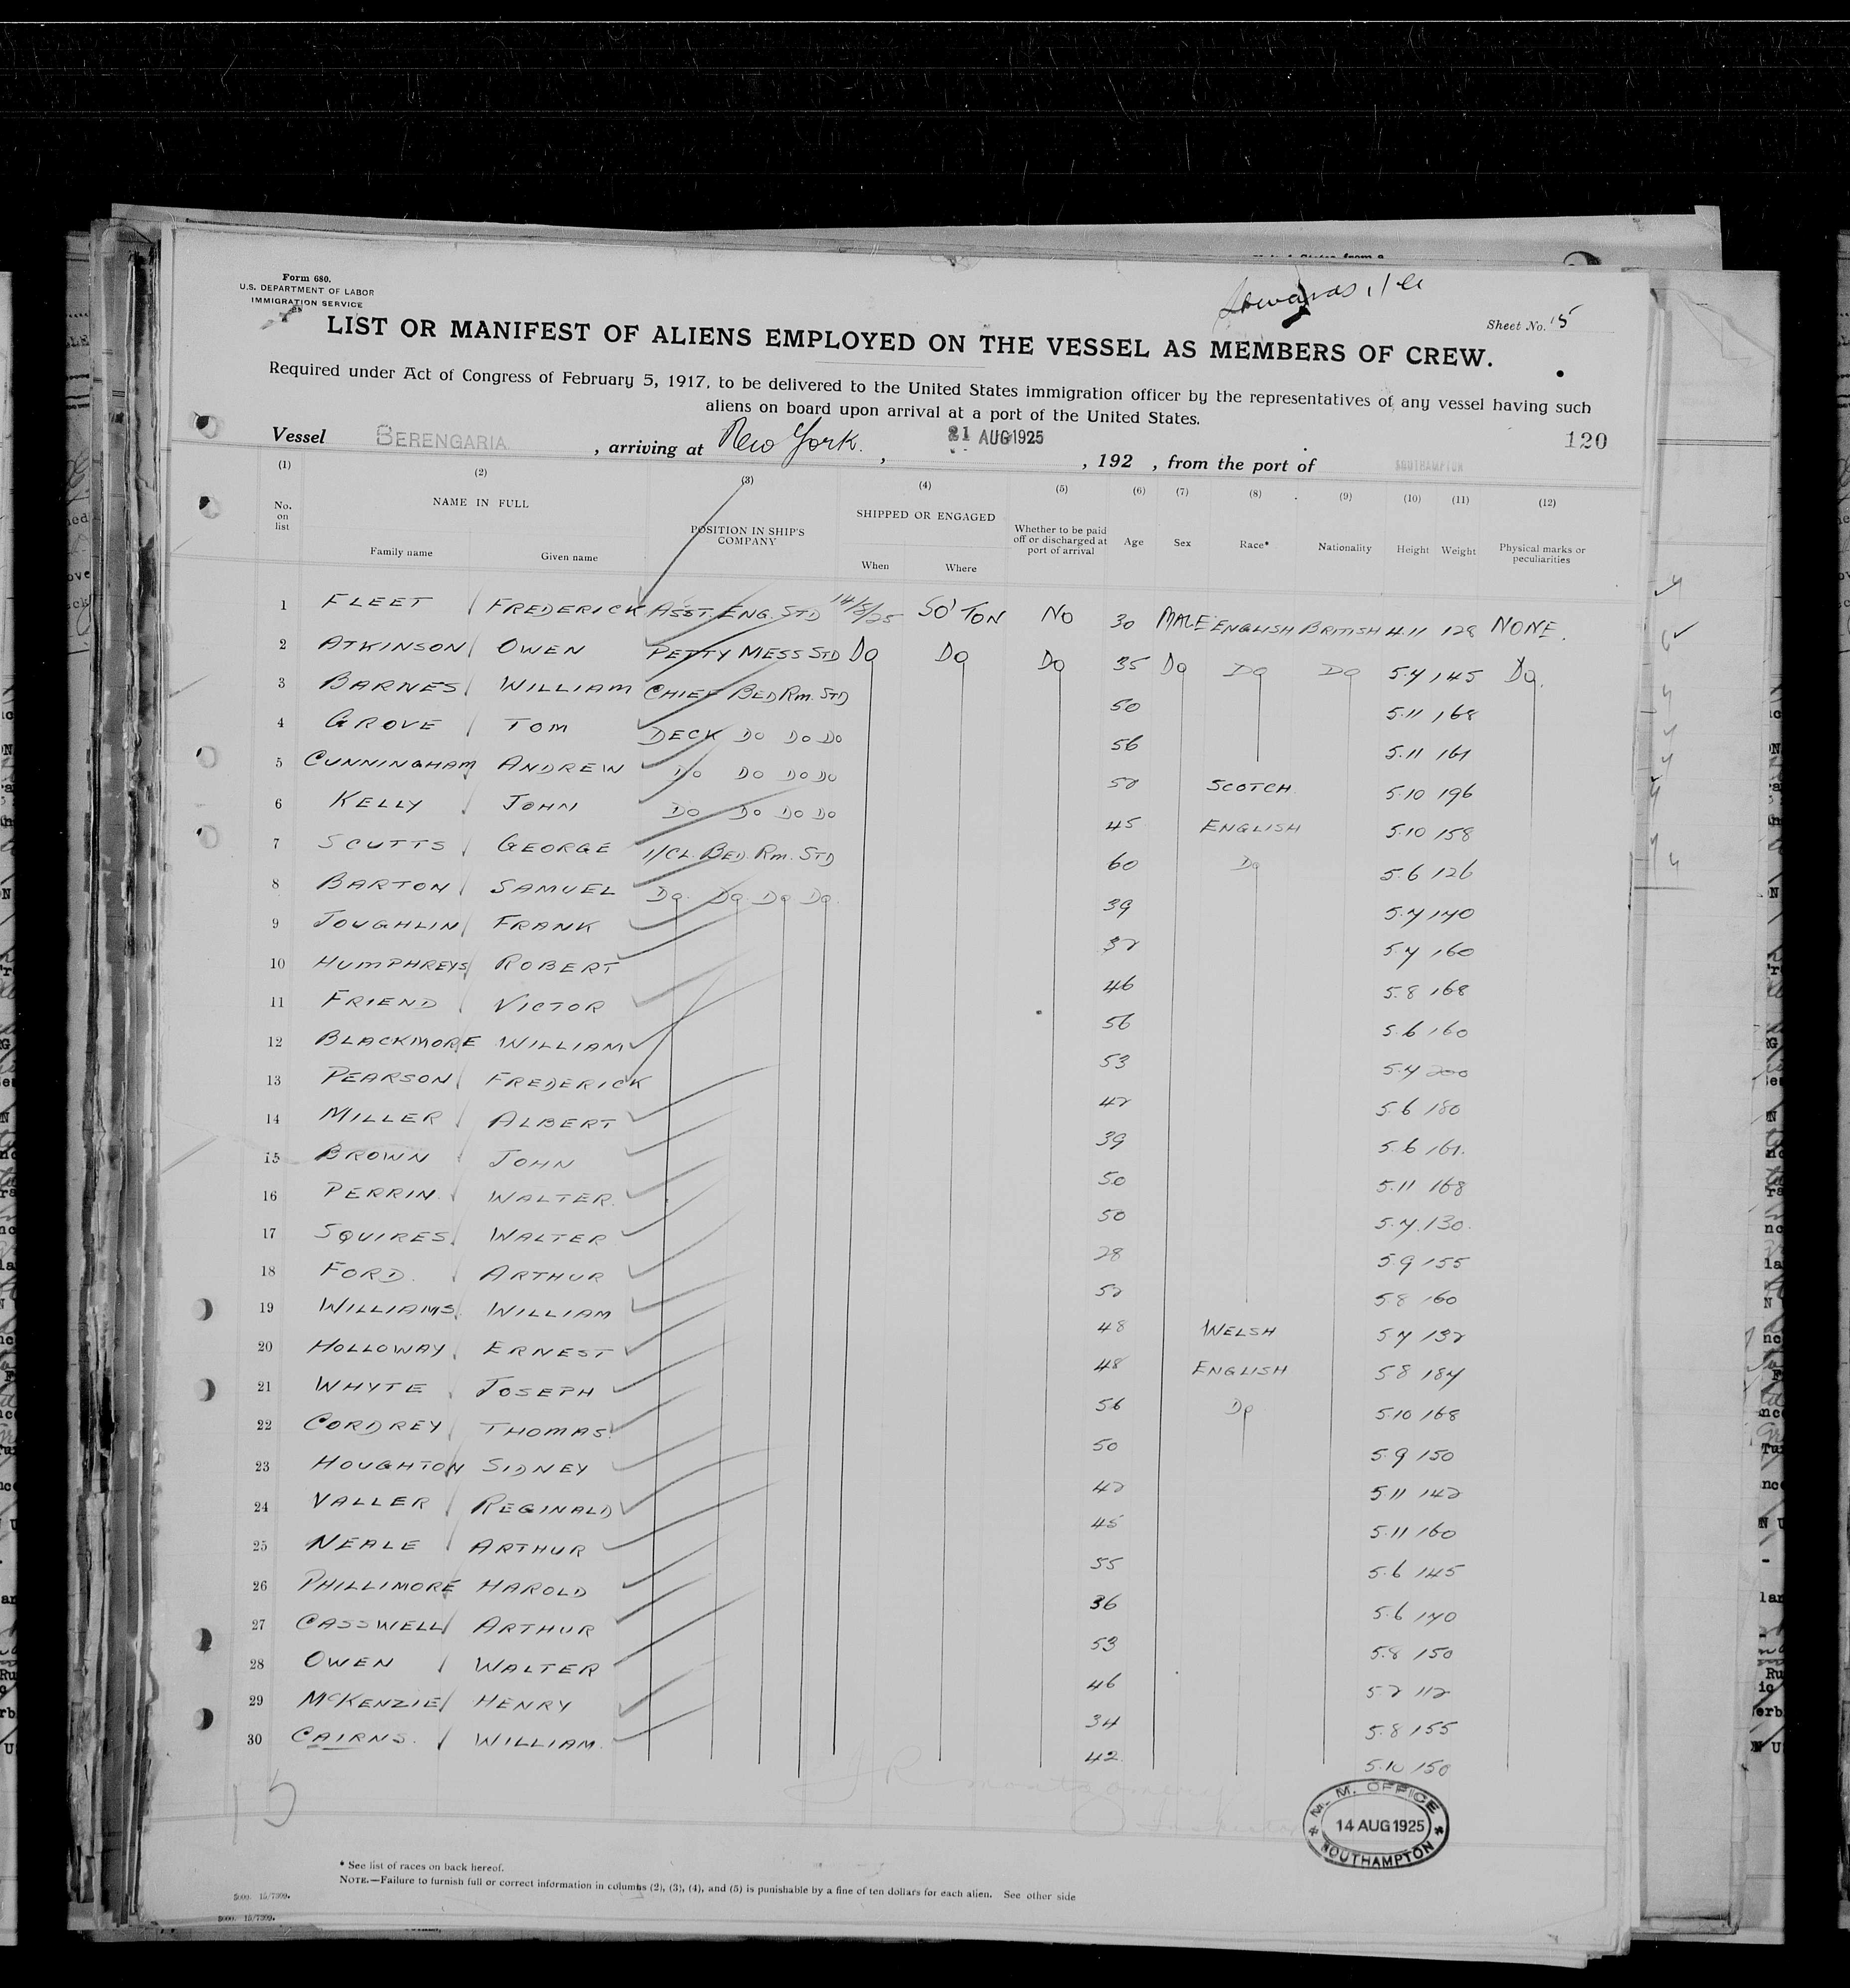 Form 680.
U.S. DEPARTMENT OF LABOR
IMMIGRATION SERVICE
Sheet No. 15
LIST OR MANIFEST OF ALIENS EMPLOYED ON THE VESSEL AS MEMBERS OF CREW.
Required under Act of Congress of February 5, 1917, to be delivered to the United States immigration officer by the representatives of any vessel having such
aliens on board upon arrival at a port of the United States.
120
Vessel BERENGARIA, arriving at New York, 21 AUG 1925, 192 , from the port of SOUTHAMPTON
(1) (2) (3) (4) (5) (6) (7) (8) (9) (10) (11) (12)
No. on list NAME IN FULL Family name Given name POSITION IN SHIP'S COMPANY SHIPPED OR ENGAGED When Where Whether to be paid off or discharged at port of arrival Age Sex Race* Nationality Height Weight Physical marks or peculiarities
1 FLEET FREDERICK ASST. ENG. STD 14/8/25 SO'TON NO 30 MALE ENGLISH BRITISH 4.11 128 NONE.
2 ATKINSON OWEN PETTY MESS STD DO DO DO 35 DO DO DO 5.4 145 DO.
3 BARNES WILLIAM CHIEF BED Rm. STD 50 5.11 168
4 GROVE TOM DECK DO DO DO 56 5.11 161
5 CUNNINGHAM ANDREW DO DO DO DO 52 SCOTCH 5.10 196
6 KELLY JOHN DO DO DO DO 45 ENGLISH 5.10 158
7 SCUTTS GEORGE 1/CL. BED. Rm. STD 60 DO 5.6 126
8 BARTON SAMUEL DO. DO DO DO. 39 5.4 140
9 JOUGHLIN FRANK 32 5.4 160
10 HUMPHREYS ROBERT 46 5.8 168
11 FRIEND VICTOR 56 5.6 160
12 BLACKMORE WILLIAM 53 5.4 200
13 PEARSON FREDERICK 42 5.6 180
14 MILLER ALBERT 39 5.6 161.
15 BROWN JOHN 50 5.11 168
16 PERRIN WALTER 50 5.4 130.
17 SQUIRES WALTER 28 5.9 155
18 FORD ARTHUR 52 5.8 160
19 WILLIAMS WILLIAM 48 WELSH 5.4 132
20 HOLLOWAY ERNEST 48 ENGLISH 5.8 184
21 WHYTE JOSEPH 56 DO 5.10 168
22 CORDREY THOMAS 50 5.9 150
23 HOUGHTON SIDNEY 42 5.11 142
24 VALLER REGINALD 45 5.11 160
25 NEALE ARTHUR 55 5.6 145
26 PHILLIMORE HAROLD 36 5.6 140
27 CASSWELL ARTHUR 53 5.8 150
28 OWEN WALTER 46 5.2 112
29 McKENZIE HENRY 34 5.8 155
30 CAIRNS. WILLIAM 42 5.10 150
15
M. M. OFFICE
14 AUG 1925
SOUTHAMPTON
* See list of races on back hereof.
NOTE.—Failure to furnish full or correct information in columns (2), (3), (4), and (5) is punishable by a fine of ten dollars for each alien. See other side
5000. 15/7399.
5000. 15/7399.